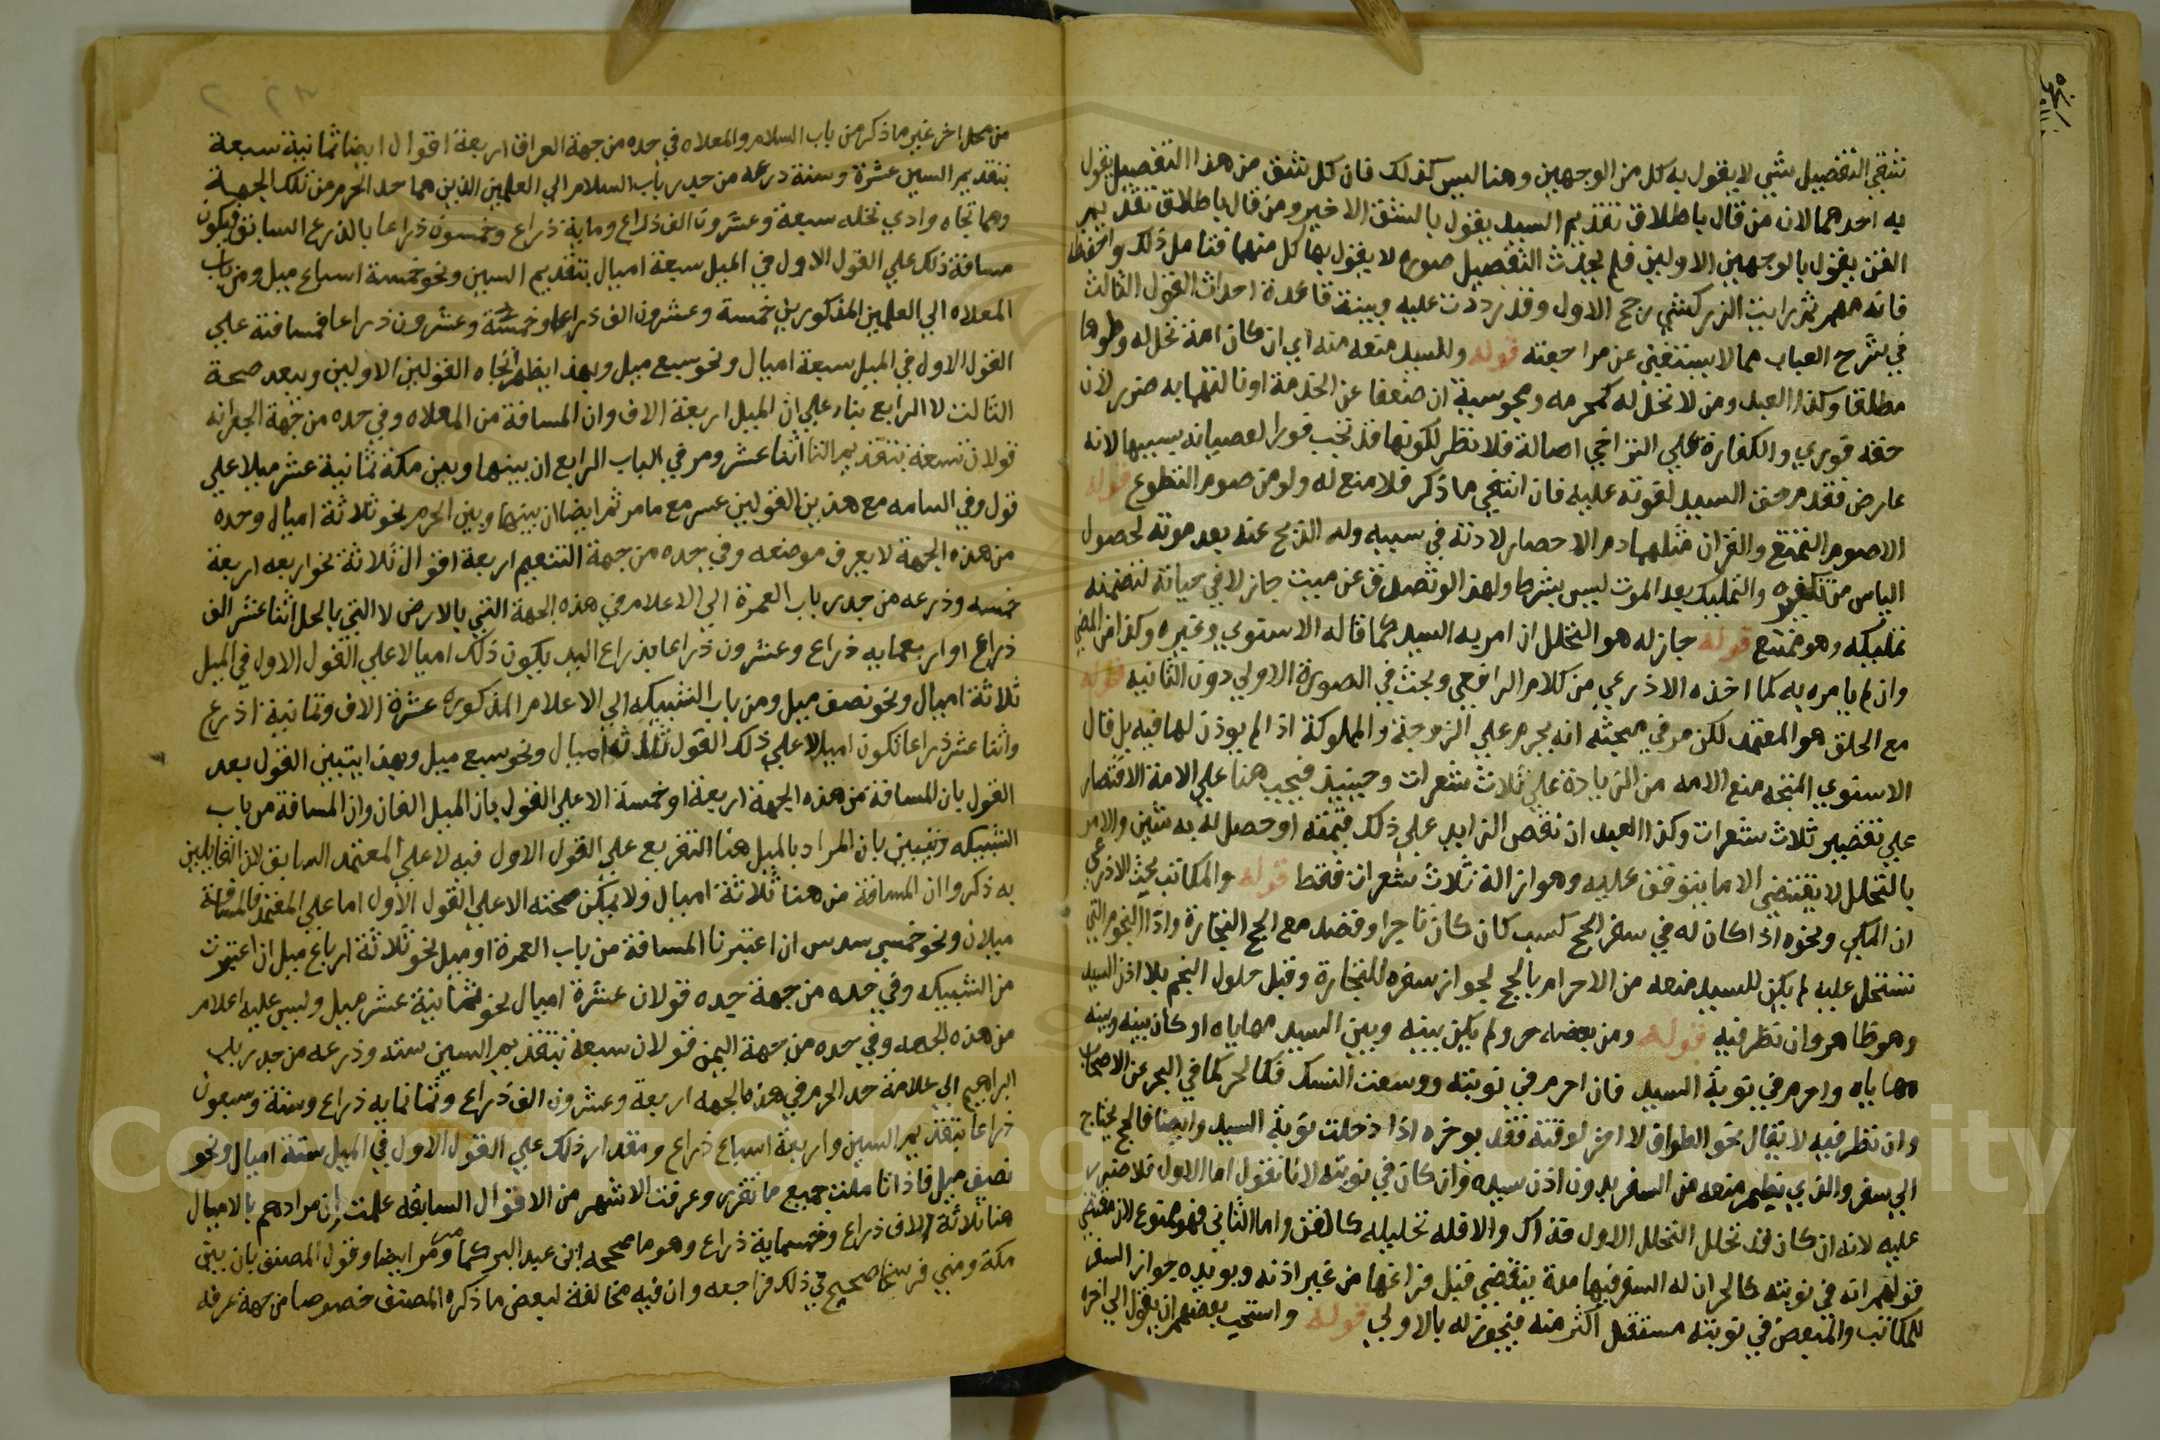 تنتفي التفصيل بشي لا يقول به كل من الوجهين وهنا ليس كذلك فان كل شق من هذا التفصيل يقول
به احدهما لان من قال باطلاق تقديم السيد يقول بالشق الاخير ومن قال باطلاق تقديم
القن يقول بالوجهين الاولين فلم يحدث التفصيل صوره لا يقول بها كل منهما فتامل ذلك واحفظه
فانه مهم ثم رايت الزركشي رجح الاول وقد رددت عليه وبينة قاعدة احداث القول الثالث
في شرح العباب مما لا يستغني عن مراجعته قوله وللسيد منعه منه اي ان كان امة تحل له وطوها
مطلقا وكذا العبد ومن لا تحل له كمحرمه ومجوسية ان ضعفا عن الخدمة او نالهما به ضرر لان
حقه فوري والكفارة علي التراخي اصالة فلا نظر لكونها قد تجب فورا لعصيانه بسببها لانه
عارض فقدم حق السيد لقوته عليه فان انتفي ما ذكر فلا منع له ولو من صوم التطوع قوله
الا صوم التمتع والقران مثلهما دم الاحصار لاذنه في سببه وله الذبح عنه بعد موته لحصول
الياس من تكفيره والتمليك بعد الموت ليس بشرط ولهذا لو تصدق عن ميت جاز لا في حياته لتضمنه
تمليكه وهو ممتنع قوله جاز له هو التحلل ان امر به السيد كما قاله الاسنوي وغيره وكذا في المضي
وان لم يامره به كما اخذه الاذرعي من كلام الرافعي وبحث في الصورة الاولي دون الثانيه قوله
مع الحلق هو المعتمد لكن مر في مبحثه انه يحرم علي الزوجة والمملوكة اذا لم يوذن لها فيه بل قال
الاسنوي المتجه منع الامه من الزيادة علي ثلاث شعرات وحينيذ فيجب هنا علي الامة الاقتصار
علي تقصير ثلاث شعرات وكذا العبد ان نقص الزايد علي ذلك قيمته او حصل له به شين والامر
بالتحلل لا يقتضي الا ما يتوقف عليه وهو ازالة ثلاث شعرات فقط قوله والمكاتب بحث الاذرعي
ان المكي ونحوه اذا كان له في سفر الحج كسب كان كان تاجرا وقصد مع الحج التجارة واذا النجوم التي
ستحل عليه لم يكن للسيد منعه من الاحرام بالحج لجواز سفره للتجارة وقبل حلول النجم بلا اذن السيد
وهو ظاهر وان نظر فيه قوله ومن بعضه حر ولم يكن بينه وبين السيد مهاياه او كان بينه وبينه
مهاياه واحرم في نوبة السيد فان احرم في نوبته ووسعت النسك فكالحر كما في البحر عن الاصحاب
وان نظر فيه لا يقال نحو الطواف لا اخر لوقته فقد يوخره اذا دخلت نوبة السيد وايضا فالحج يحتاج
الي سفر والذي يظهر منعه من السفر بدون اذن سيده وان كان في نوبته لانا نقول اما الاول فلا ضرر
عليه لانه ان كان قد تحلل التحلل الاول فذاك والا فله تحليله كالقن واما الثاني فهو ممنوع لان مقتضي
قولهم انه في نوبته كالحر ان له السفر فيها مدة ينقضي قبل فراغها من غير اذنه ويويده جواز السفر
للمكاتب والمبعض في نوبته مستقل اكثر منه فتجويزه له بالاولي قوله واستحب بعضهم ان يقول الي اخره
من محل اخر غير ما ذكر من باب السلام والمعلاه في حده من جهة العراق اربعة اقوال ايضا ثمانية سبعة
بتقديم السين عشرة وستة وذرعه من جدر باب السلام الي العلمين الذين هما حد الحرم من تلك الجهة
وهما تجاه وادي نخله سبعة وعشرون الف ذراع وماية ذراع وخمسون ذراعا بالذرع السابق فيكون
مسافة ذلك علي القول الاول في الميل سبعة اميال بتقديم السين ونحو خمسة اسباع ميل ومن باب
المعلاه الي العلمين المذكورين خمسة وعشرون الف ذراعا وخمسة وعشرون ذراعا فمسافته علي
القول الاول في الميل سبعة اميال ونحو سبع ميل وبهذا يظهر اتجاه القولين الاولين ويبعد صحة
الثالث لا الرابع بناء علي ان الميل اربعة الاف وان المسافة من المعلاه وفي حده من جهة الجعرانه
قولان تسعة بتقديم التا اثنا عشر ومر في الباب الرابع ان بينها وبين مكة ثمانية عشر ميلا علي
قول وفي السامه مع هذين القولين عسر مع ما مر ثم ايضا ان بينها وبين الحرم نحو ثلاثة اميال وحده
من هذه الجهة لا يعرف موضعه وفي حده من جهة التنعيم اربعة اقوال ثلاثة نحو اربعه اربعة
خمسه وذرعه من جدر باب العمرة الي الاعلام في هذه الجهة التي بالارض لا التي بالجبل اثنا عشر الف
ذراع واربعمايه ذراع وعشرون ذراعا بذراع اليد يكون ذلك اميالا علي القول الاول في الميل
ثلاثة اميال ونحو نصف ميل ومن باب الشبيكه الي الاعلام المذكوره عشرة الاف وثمانية اذرع
واثنا عشر ذراعا تكون اميالا علي ذلك القول ثلاثة اميال ونحو سبع ميل وبهذا يتبين القول بعد
القول بان المسافة من هذه الجهة اربعة او خمسة الا علي القول بان الميل الفان وان المسافة من باب
الشبيكه وتبين بان المراد بالميل هنا التفريع علي القول الاول فيه لا علي المعتمد السابق لان القايلين
به ذكروا ان المسافة من هنا ثلاثة اميال ولا يمكن صحته الا علي القول الاول اما علي المعتمد فالمسافة
ميلان ونحو خمسي سدس ان اعتبرنا المسافة من باب العمرة او ميل نحو ثلاثة ارباع ميل ان اعتبرت
من الشبيكه وفي حده من جهة جده قولان عشرة اميال نحو ثمانية عشر ميل وليس عليه اعلام
من هذه الجهه وفي حده من جهة اليمن قولان سبعة بتقديم السين سته وذرعه من جدر باب
ابراهيم الي علامة حد الحرم في هذه الجهه اربعة وعشرون الف ذراع وثمانمايه ذراع وستة وسبعون
ذراعا بتقديم السين واربعة اسباع ذراع ومقدار ذلك علي القول الاول في الميل ستة اميال ونحو
نصف ميل فاذا تاملت جميع ما تقرر وعرفت الاشهر من الاقوال السابقه علمت ان مرادهم بالاميال
هنا ثلاثة الاف ذراع وخمسماية ذراع وهو ما صححه ابن عبد البر كما مر ومر ايضا وقول المصنف بان بين
مكة ومني فرسخا صحيح في ذلك فراجعه وان فيه مخالفة لبعض ما ذكره المصنف خصوصا من جهة عرفه